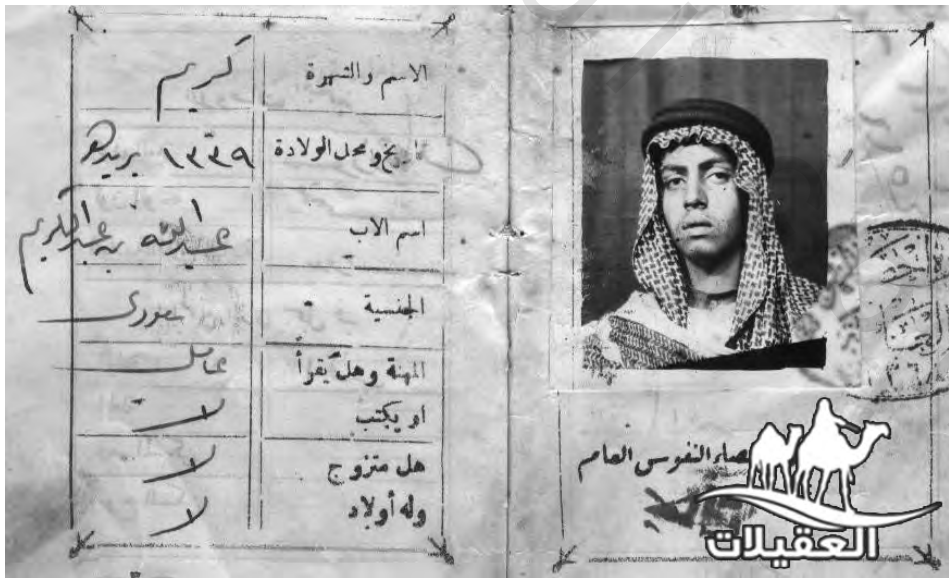 الاسم والشهرة كريم
تاريخ ومحل الولادة ١٣٣٩ بريده
اسم الاب عبدالله بن عبدالكريم
الجنسية سعودى
المهنة وهل يقرأ عامل
او يكتب لا
هل متزوج لا
وله أولاد لا
النفوس العام
العقيلات